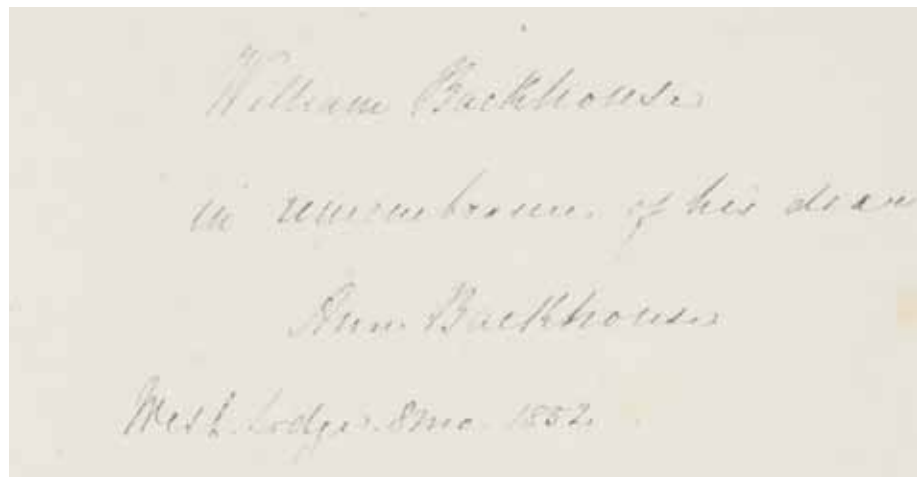 William Backhouse
in remembrance of his dear
Ann Backhouse
West Lodge 8mo. 1852